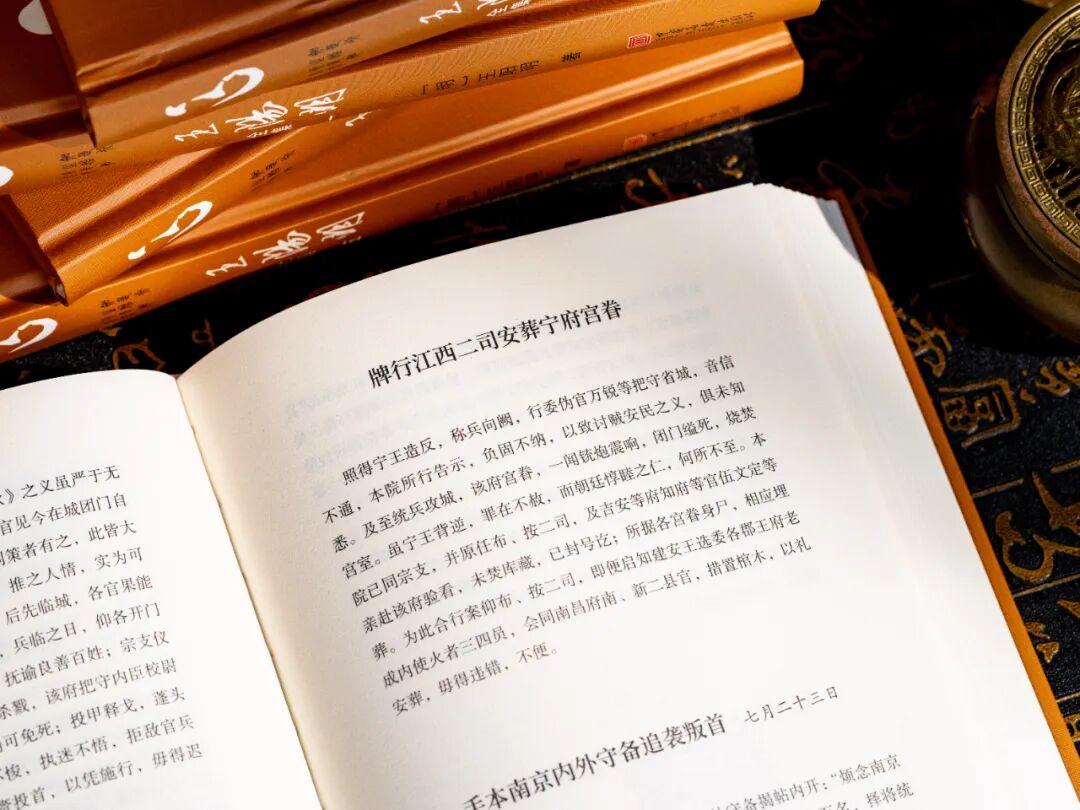 心
王阳明
全集
〔明〕王阳明 著
心
王阳明
》之义虽严于无
官见今在城团门自
同策者有之，此皆大
推之人情，实为可
后先临城，各官果能
，兵临之日，仰各开门
抚谕良善百姓；宗支仪
杀戮，该府把守内臣校尉
可免死；投甲释戈，蓬头
不悛，执迷不悟，拒敌官兵
投首，以凭施行，毋得迟
牌行江西二司安葬宁府宫眷
照得宁王造反，称兵向阙，行委伪官万锐等把守省城，音信
不通，本院所行告示，负固不纳，以致讨贼安民之义，俱未知
悉。及至统兵攻城，该府宫眷，一闻铳炮震响，闭门缢死，烧焚
宫室。虽宁王背逆，罪在不赦，而朝廷惇睦之仁，何所不至。本
院已同宗支，并原任布、按二司，及吉安等府知府等官伍文定等
亲赴该府验看，未焚库藏，已封号讫；所据各宫眷身尸，相应埋
葬。为此合行案仰布、按二司，即便启知建安王选委各郡王府老
成内使火者三四员，会同南昌府南、新二县官，措置棺木，以礼
安葬，毋得违错，不便。
手本南京内外守备追袭叛首 七月二十三日
守备揭帖内开：“烦念南京
择将统